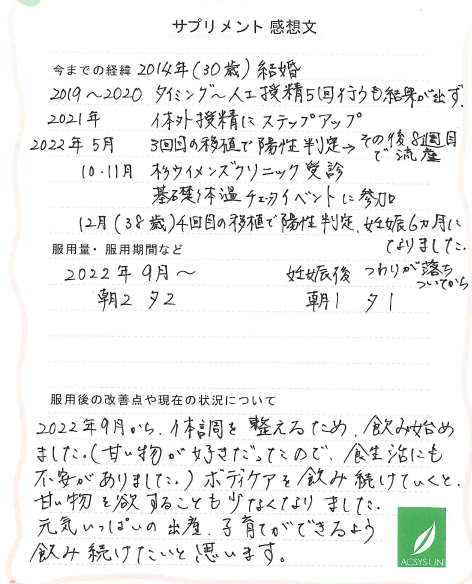 サプリメント 感想文
今までの経緯 2014年(30歳) 結婚
2019～2020 タイミング～人工授精5回行うも結果が出ず
2021年 体外授精にステップアップ
2022年5月 3回目の移植で陽性判定→その後8週目
で流産
10・11月 杉ウイメンズクリニック受診
基礎体温チェックイベントに参加
12月(38歳)4回目の移植で陽性判定、妊娠6カ月に
なりました。
服用量・服用期間など
2022年9月～ 妊娠後 つわりが落ち
ついてから
朝2 夕2 朝1 夕1
服用後の改善点や現在の状況について
2022年9月から、体調を整えるため、飲み始め
ました。(甘い物が好きだったので、食生活にも
不安がありました。)ボディケアを飲み続けていくと、
甘い物を欲することも少なくなりました。
元気いっぱいの出産、子育てができるよう
飲み続けたいと思います。
ACSYSUN